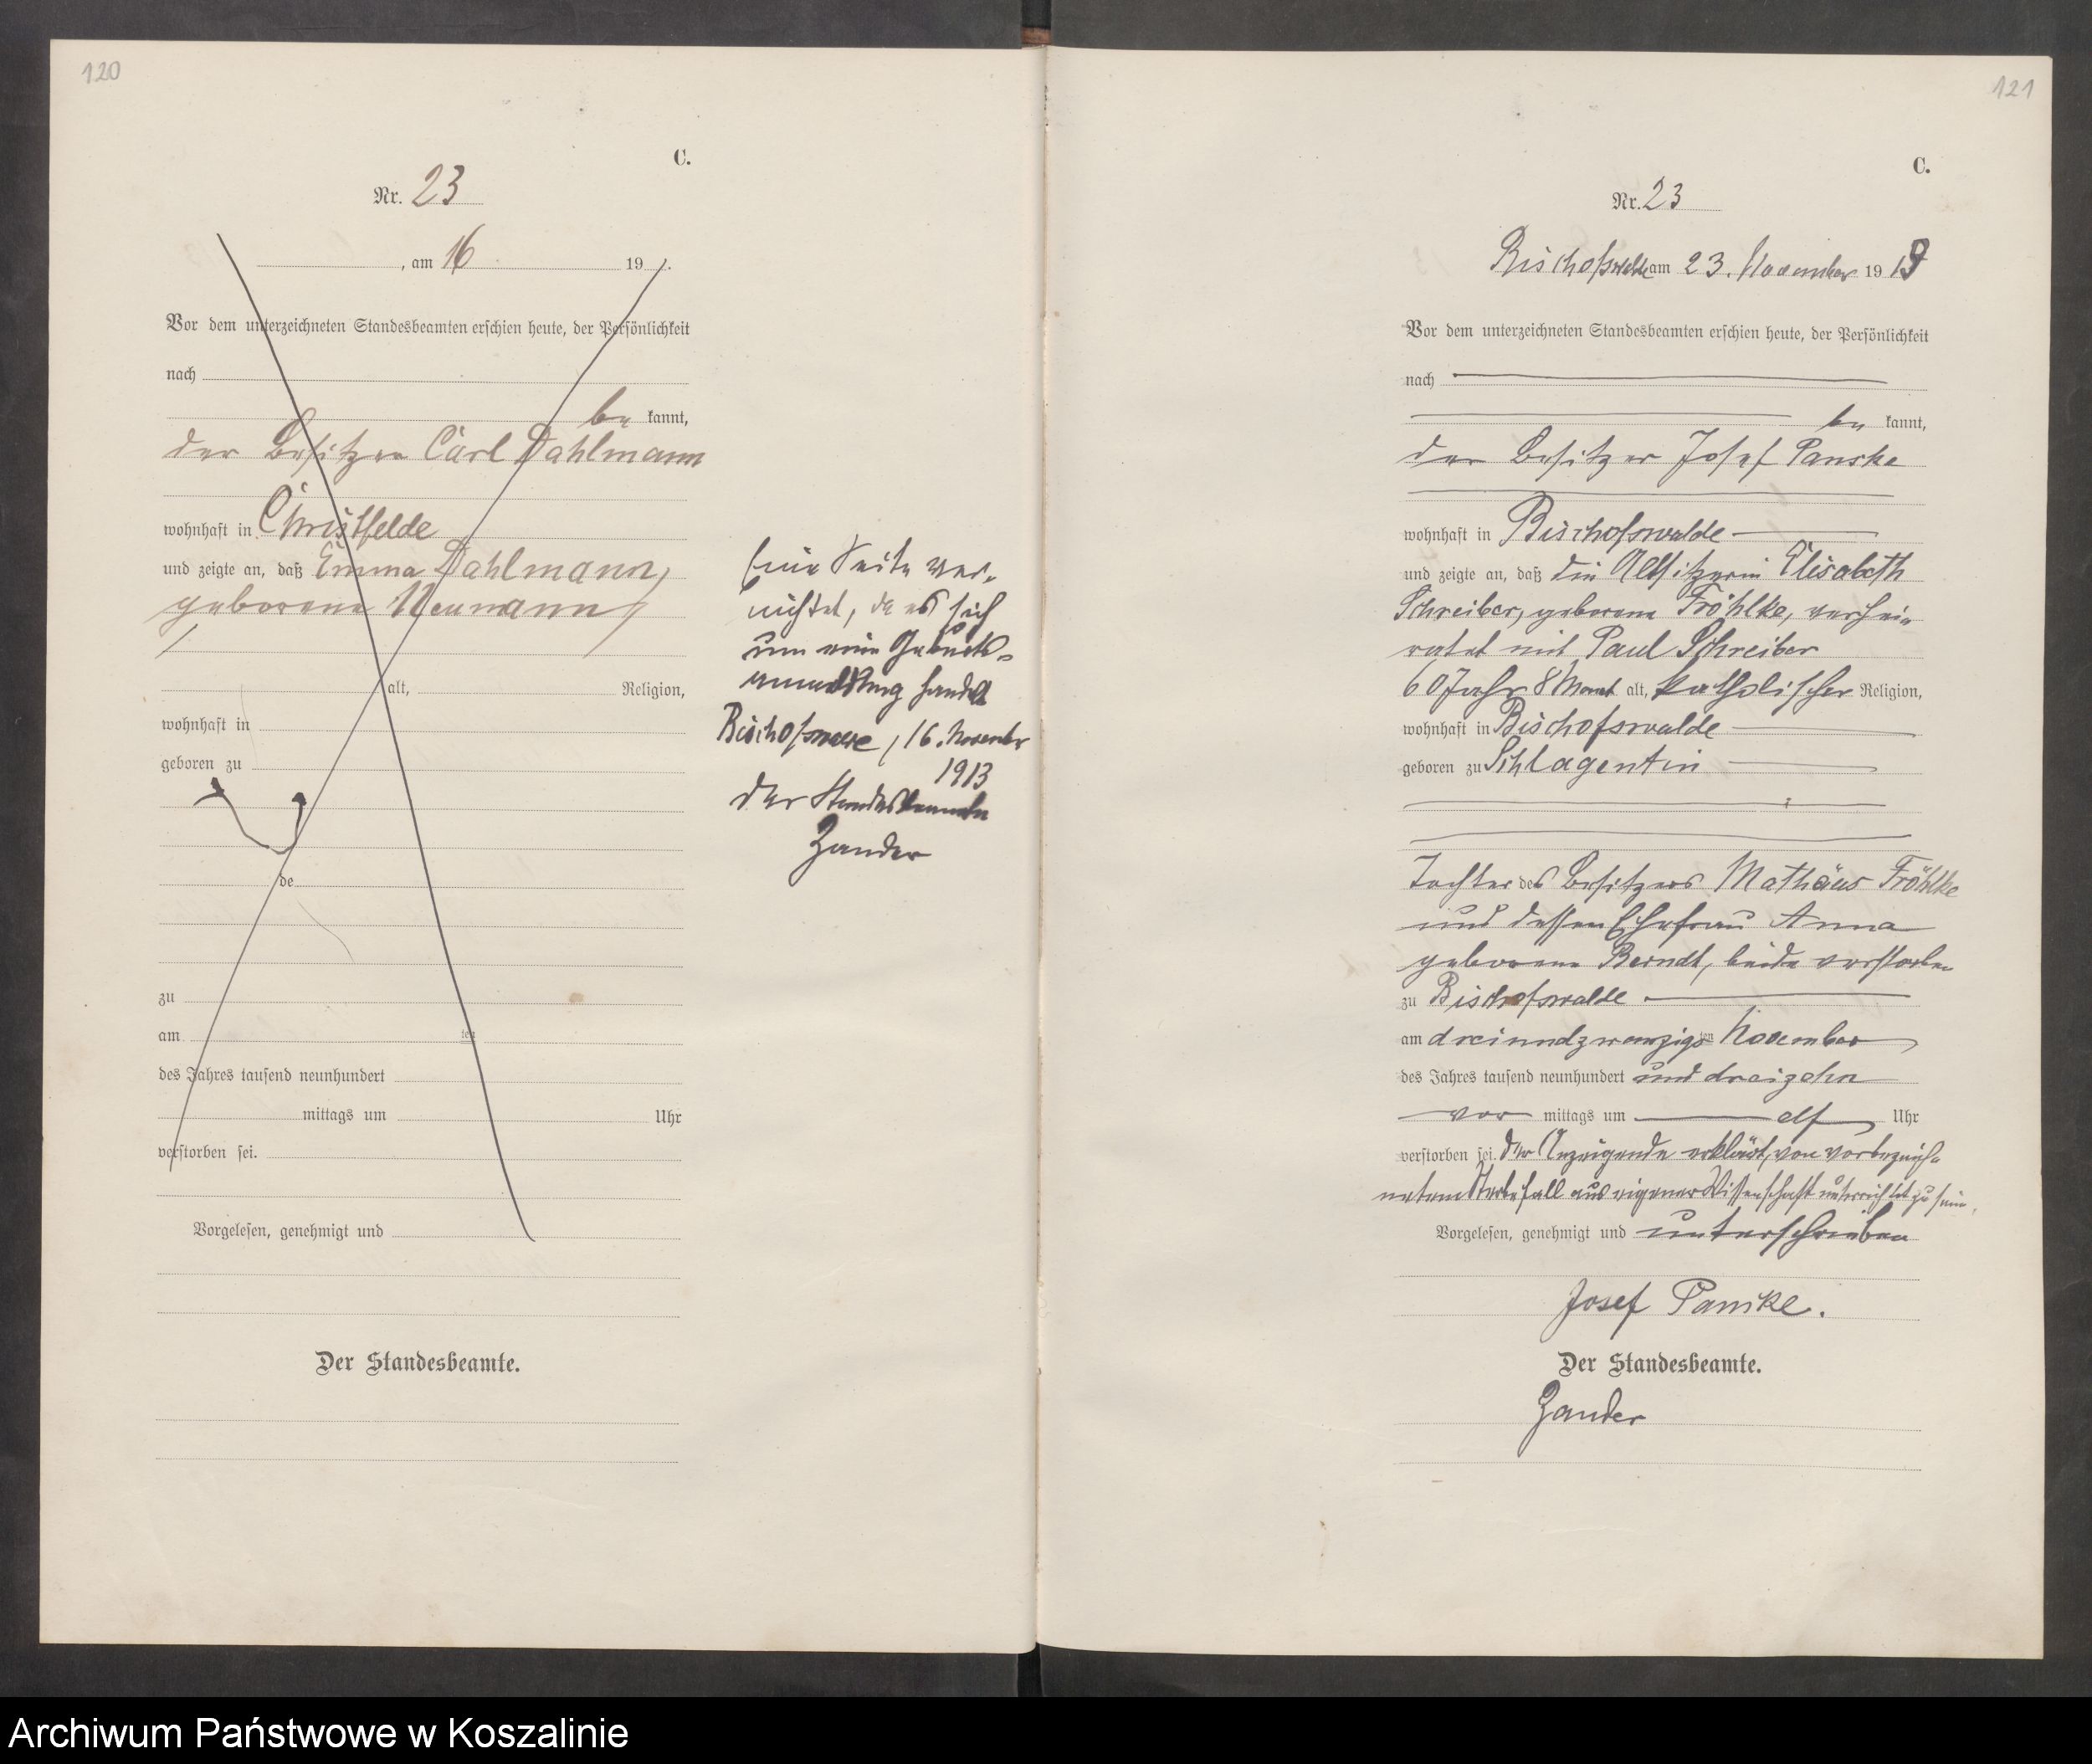 120
C.
Nr. 23
, am 16 19
Vor dem unterzeichneten Standesbeamten erschien heute, der Persönlichkeit
nach
be kannt,
der Besitzer Carl Dahlmann
wohnhaft in Christfelde
und zeigte an, daß Emma Dahlmann,
geborene Neumann,
alt, Religion,
wohnhaft in
geboren zu
de
zu
am ten
des Jahres tausend neunhundert
mittags um Uhr
verstorben sei.
Vorgelesen, genehmigt und
Der Standesbeamte.
Seite ver-
nichtet, da es sich
um eine Geburts-
anmeldung handelt
Bischofswalde, 16. November
1913
Der Standesbeamte
Zander
121
C.
Nr. 23
Bischofswalde am 23. November 1913
Vor dem unterzeichneten Standesbeamten erschien heute, der Persönlichkeit
nach
be kannt,
der Besitzer Josef Panske
wohnhaft in Bischofswalde
und zeigte an, daß die Altsitzerin Elisabeth
Schreiber, geborene Fröhlke, verhei-
ratet mit Paul Schreiber
60 Jahr 8 Monat alt, katholischer Religion,
wohnhaft in Bischofswalde
geboren zu Schlagentin
Tochter des Besitzers Mathäus Fröhlke
und dessen Ehefrau Anna
geborene Berndt, beide verstorben
zu Bischofswalde
am dreiundzwanzigsten November
des Jahres tausend neunhundert und dreizehn
vor mittags um elf Uhr
verstorben sei. Der Anzeigende erklärt, von vorbezeich-
netem Sterbefall aus eigener Wissenschaft unterrichtet zu sein.
Vorgelesen, genehmigt und unterschrieben
Josef Panske.
Der Standesbeamte.
Zander
Archiwum Państwowe w Koszalinie